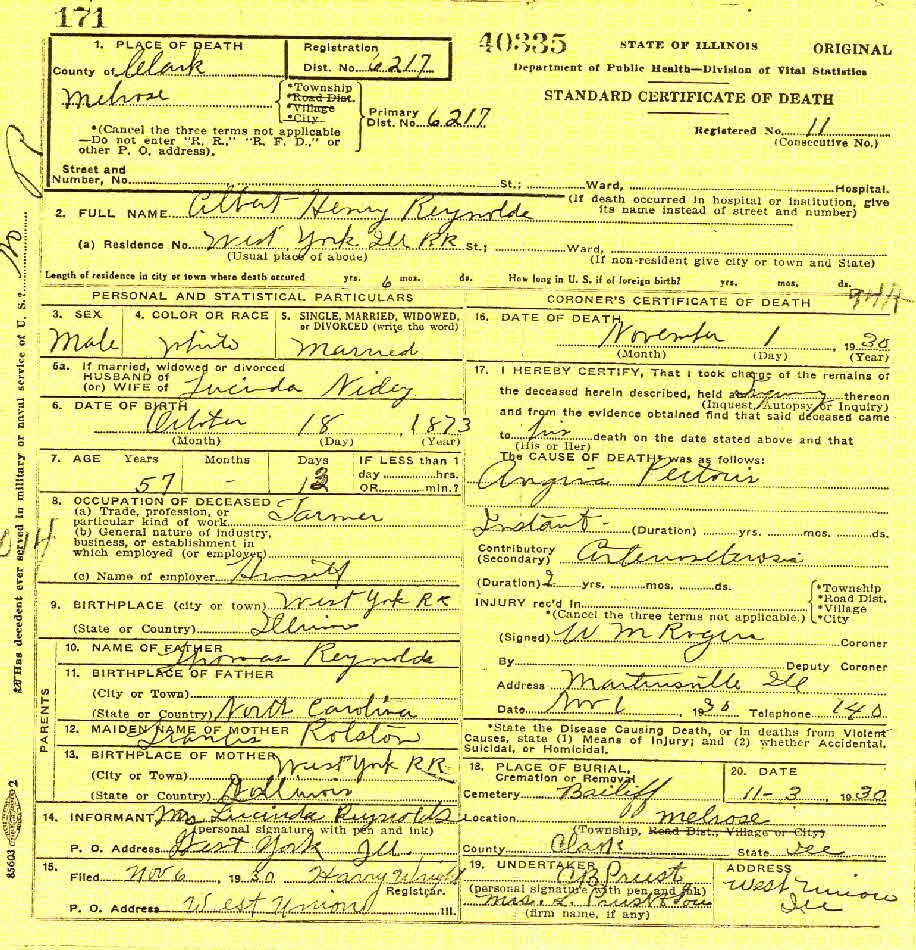 171
1. PLACE OF DEATH
County of Clark
Registration
Dist. No. 6217
40335
STATE OF ILLINOIS
ORIGINAL
Department of Public Health—Division of Vital Statistics
STANDARD CERTIFICATE OF DEATH
Melrose
*Township
*Road Dist.
*Village
*City
Primary
Dist. No. 6217
Registered No. 11
(Consecutive No.)
*(Cancel the three terms not applicable
—Do not enter "R. R.," "R. F. D.," or
other P. O. address).
Street and
Number, No. St.; Ward, Hospital.
(If death occurred in hospital or institution, give
its name instead of street and number)
2. FULL NAME Albert Henry Reynolds
(a) Residence No. West York Ill RR St.; Ward,
(Usual place of abode)
(If non-resident give city or town and State)
Length of residence in city or town where death occured yrs. 6 mos. ds. How long in U. S. if of foreign birth? yrs. mos. ds.
PERSONAL AND STATISTICAL PARTICULARS
3. SEX
Male
4. COLOR OR RACE
white
5. SINGLE, MARRIED, WIDOWED,
or DIVORCED (write the word)
Married
5a. If married, widowed or divorced
HUSBAND of
(or) WIFE of Lucinda Nidey
6. DATE OF BIRTH
October 18 1873
(Month) (Day) (Year)
7. AGE Years Months Days
57 - 13
IF LESS than 1
day hrs.
OR min.?
8. OCCUPATION OF DECEASED
(a) Trade, profession, or
particular kind of work Farmer
(b) General nature of industry,
business, or establishment in
which employed (or employer)
(c) Name of employer Himself
9. BIRTHPLACE (city or town) West York RR
(State or Country) Illinois
PARENTS
10. NAME OF FATHER
Thomas Reynolds
11. BIRTHPLACE OF FATHER
(City or Town)
(State or Country) North Carolina
12. MAIDEN NAME OF MOTHER
Francis Rolston
13. BIRTHPLACE OF MOTHER
(City or Town) West York RR
(State or Country) Illinois
14. INFORMANT Mrs Lucinda Reynolds
(personal signature with pen and ink)
P. O. Address West York Ill
15.
Filed Nov 6, 1930 Harry Wright
Registrar.
P. O. Address West Union Ill.
CORONER'S CERTIFICATE OF DEATH
16. DATE OF DEATH
November 1, 1930
(Month) (Day) (Year)
17. I HEREBY CERTIFY, That I took charge of the remains of
the deceased herein described, held an Inquiry thereon
(Inquest, Autopsy or Inquiry)
and from the evidence obtained find that said deceased came
to his death on the date stated above and that
(His or Her)
The CAUSE OF DEATH* was as follows:
Angina Pectoris
Instant - (Duration) yrs. mos. ds.
Contributory
(Secondary) Arteriosclerosis
(Duration) 2 yrs. mos. ds.
INJURY rec'd in
*Township
*Road Dist.
*Village
*City
*(Cancel the three terms not applicable.)
(Signed) W M Rogers Coroner
By Deputy Coroner
Address Martinsville Ill
Date Nov 1 1930 Telephone 140
*State the Disease Causing Death, or in deaths from Violent
Causes, state (1) Means of Injury; and (2) whether Accidental,
Suicidal, or Homicidal.
18. PLACE OF BURIAL,
Cremation or Removal
Cemetery Bailiff
20. DATE
11-3, 1930
Location Melrose
(Township, Road Dist., Village or City)
County Clark State Ill
19. UNDERTAKER
C B Prust
(personal signature with pen and ink)
Mrs. L. Prust & Son
(firm name, if any)
ADDRESS
West Union
Ill
Has decedent ever served in military or naval service of U. S.? no
85603
2